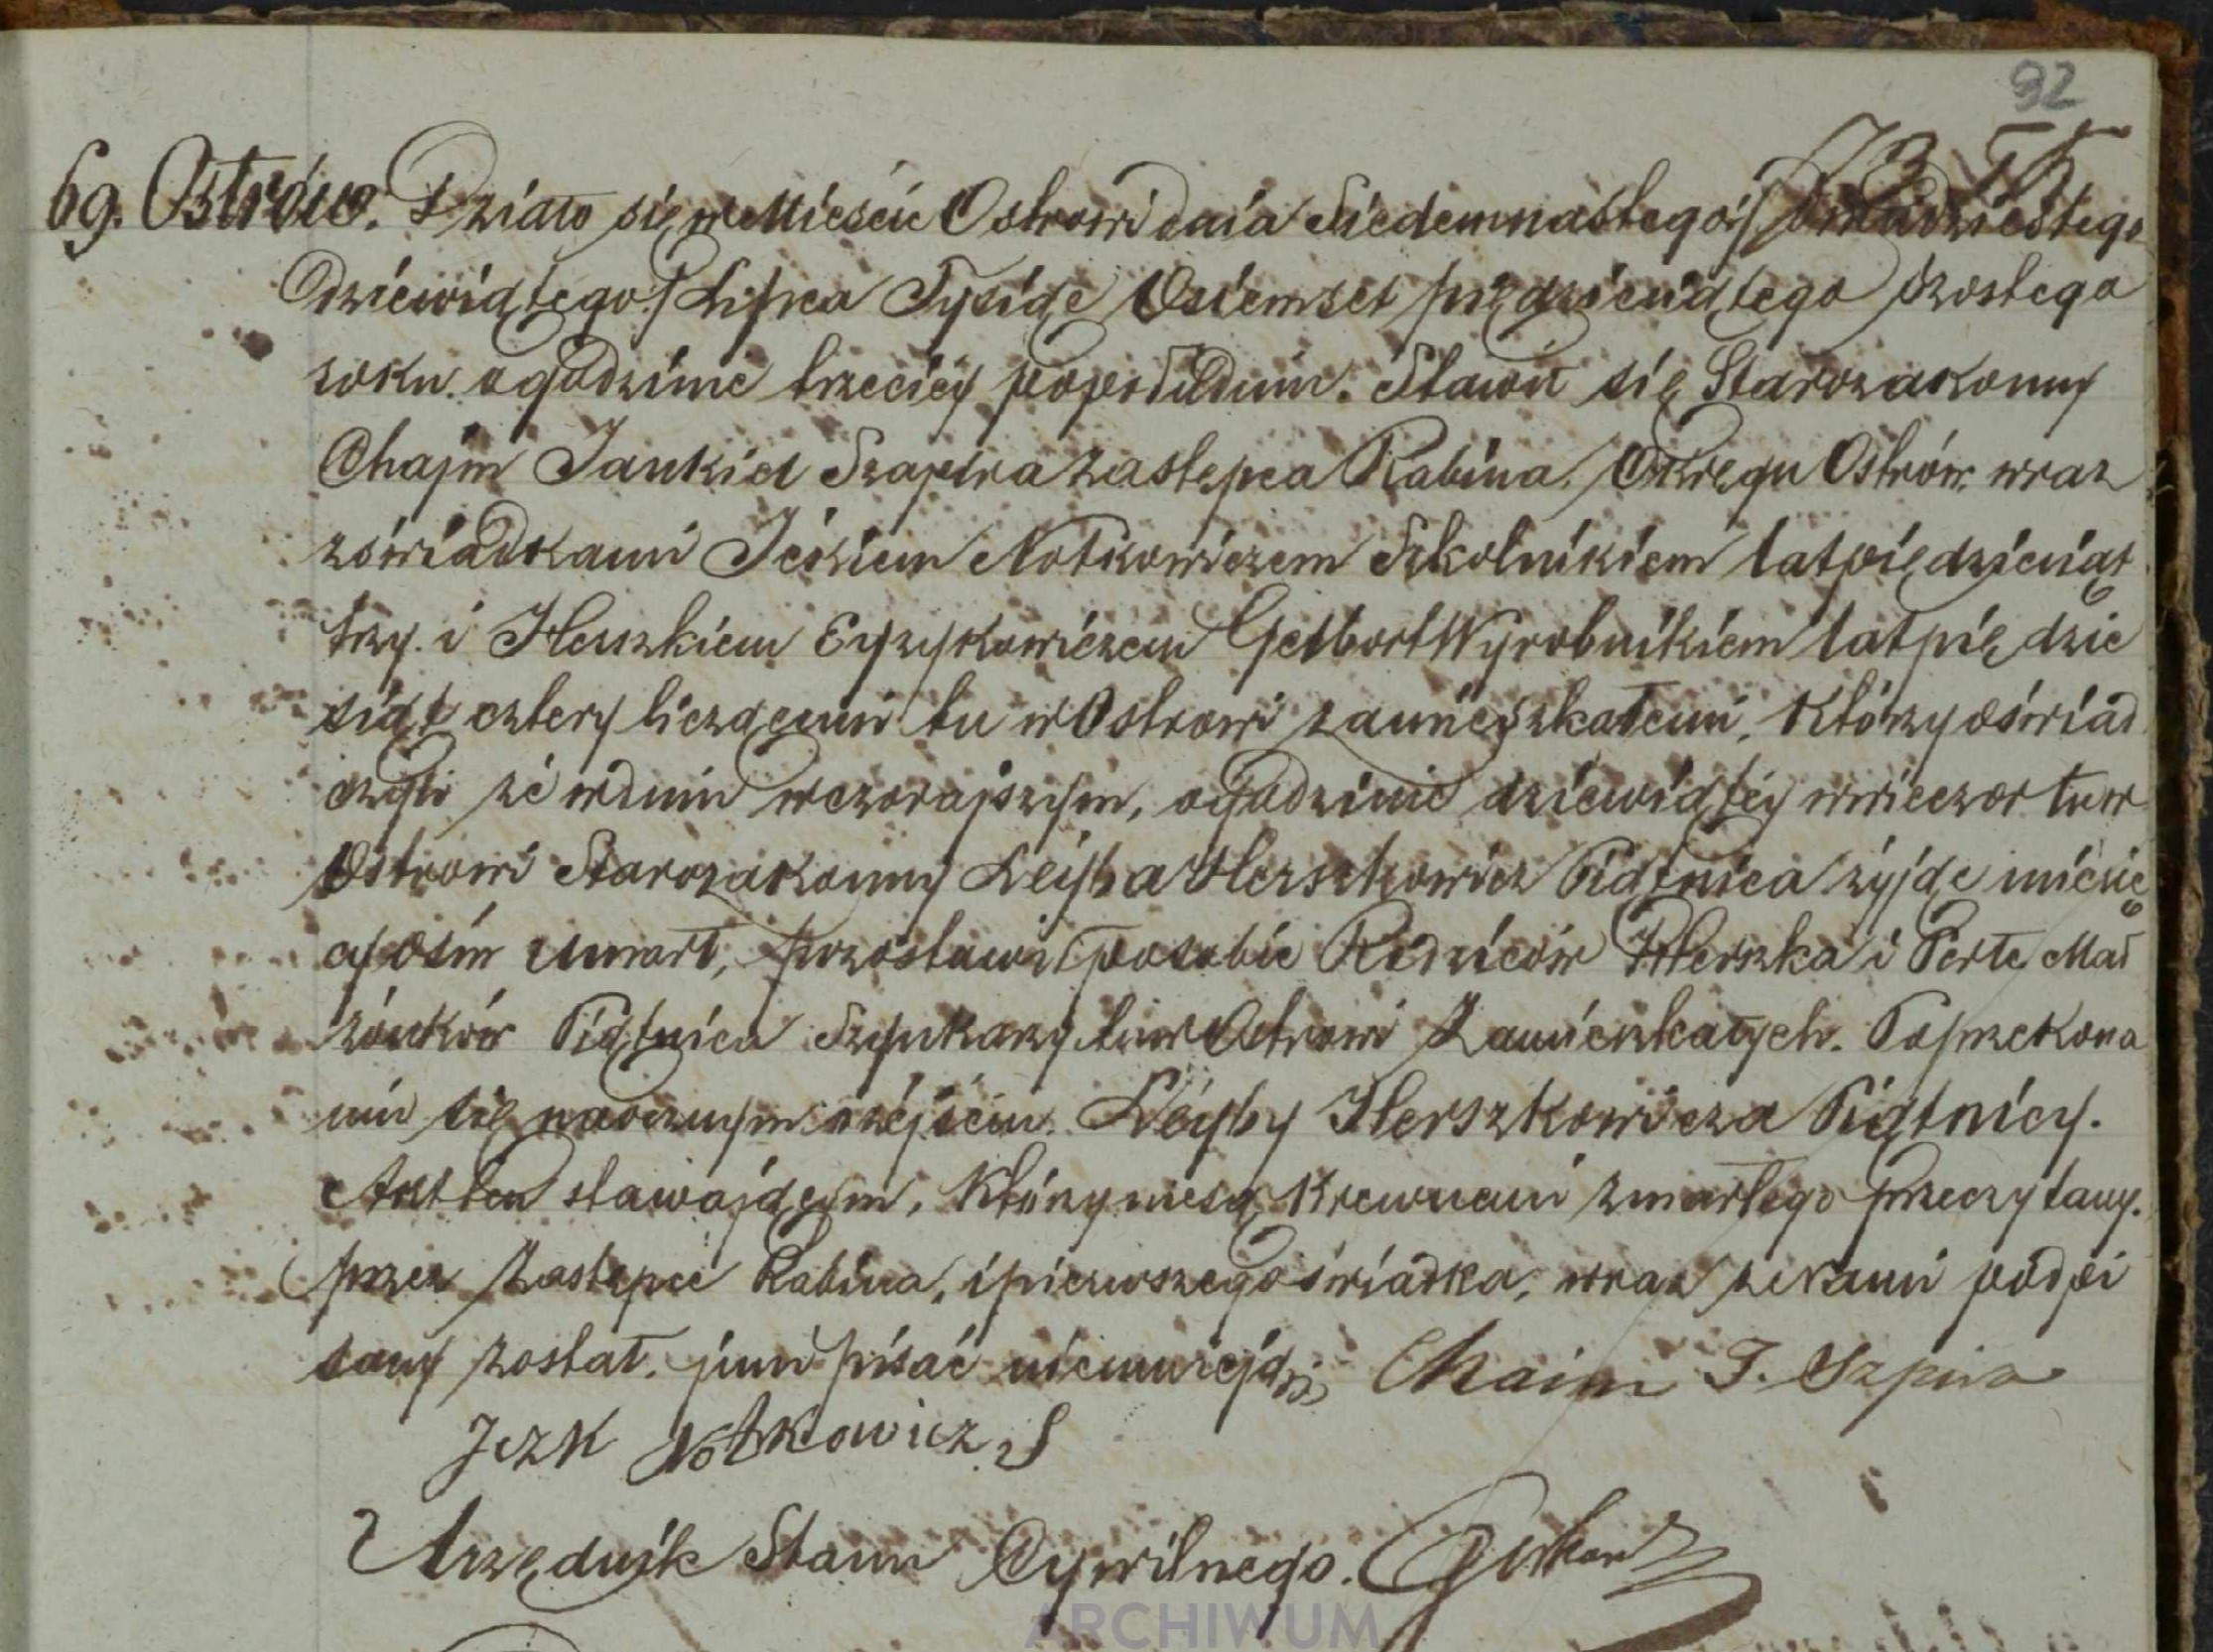 92
69. Ostrów. Działo się w Mieście Ostrowi dnia Siedemnastego /: Dwudziestego
Dziewiątego :/ Lipca Tysiąc Osiemset piędziesiątego szostego
roku o godzinie trzeciéy popołudniu. Stawił się Starozakonny
Chajm Jankiel Szapira Zastępca Rabina Okręgu Ostrów. wraz
z świadkami Ickiem Notkowiczem Szkolnikiem lat pięдziesiąt
trzy. i Herszkiem Eyzykowiczem Gelbort Wyrobnikiem lat piędzie
siąt cztery liczącemi tu w Ostrowi zamieyszkałemi, Którzy oświad
czyli że w dniu wczorajszym, o godzinie dziewiątéy w wieczor tu w
Ostrowi Starozakonny Leyba Herszkowicz Piątnica żyjąc miesię
cy osim Umarł, pozostawił po sobie Rodziców Herszka i Perle Mał
żonków Piątnica Szynkarzy tu w Ostrowi Zamieszkałych. Po przekona
niu się naocznym o zéjściu Leyby Herszkowicza Piątnicy.
Akt ten stawającym, Którzy niesą Krewnemi zmarłego przeczytany.
przez Zastępcé Rabina, i pierwszego świadka, wraz z nami podpi
sany został. jnni pisać nieumieją
Chaim J. Szpira
Jczk Notkowicz
Urzędnik Stanu Cywilnego.
ARCHIWUM